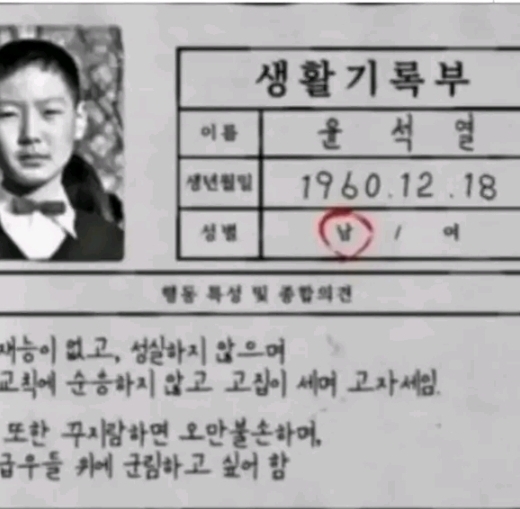 생활기록부
이름 윤 석 열
생년월일 1960.12.18
성별 남 / 여
행동 특성 및 종합의견
재능이 없고, 성실하지 않으며
교칙에 순응하지 않고 고집이 세며 고자세임.
또한 꾸지람하면 오만불손하며,
급우들 위에 군림하고 싶어 함